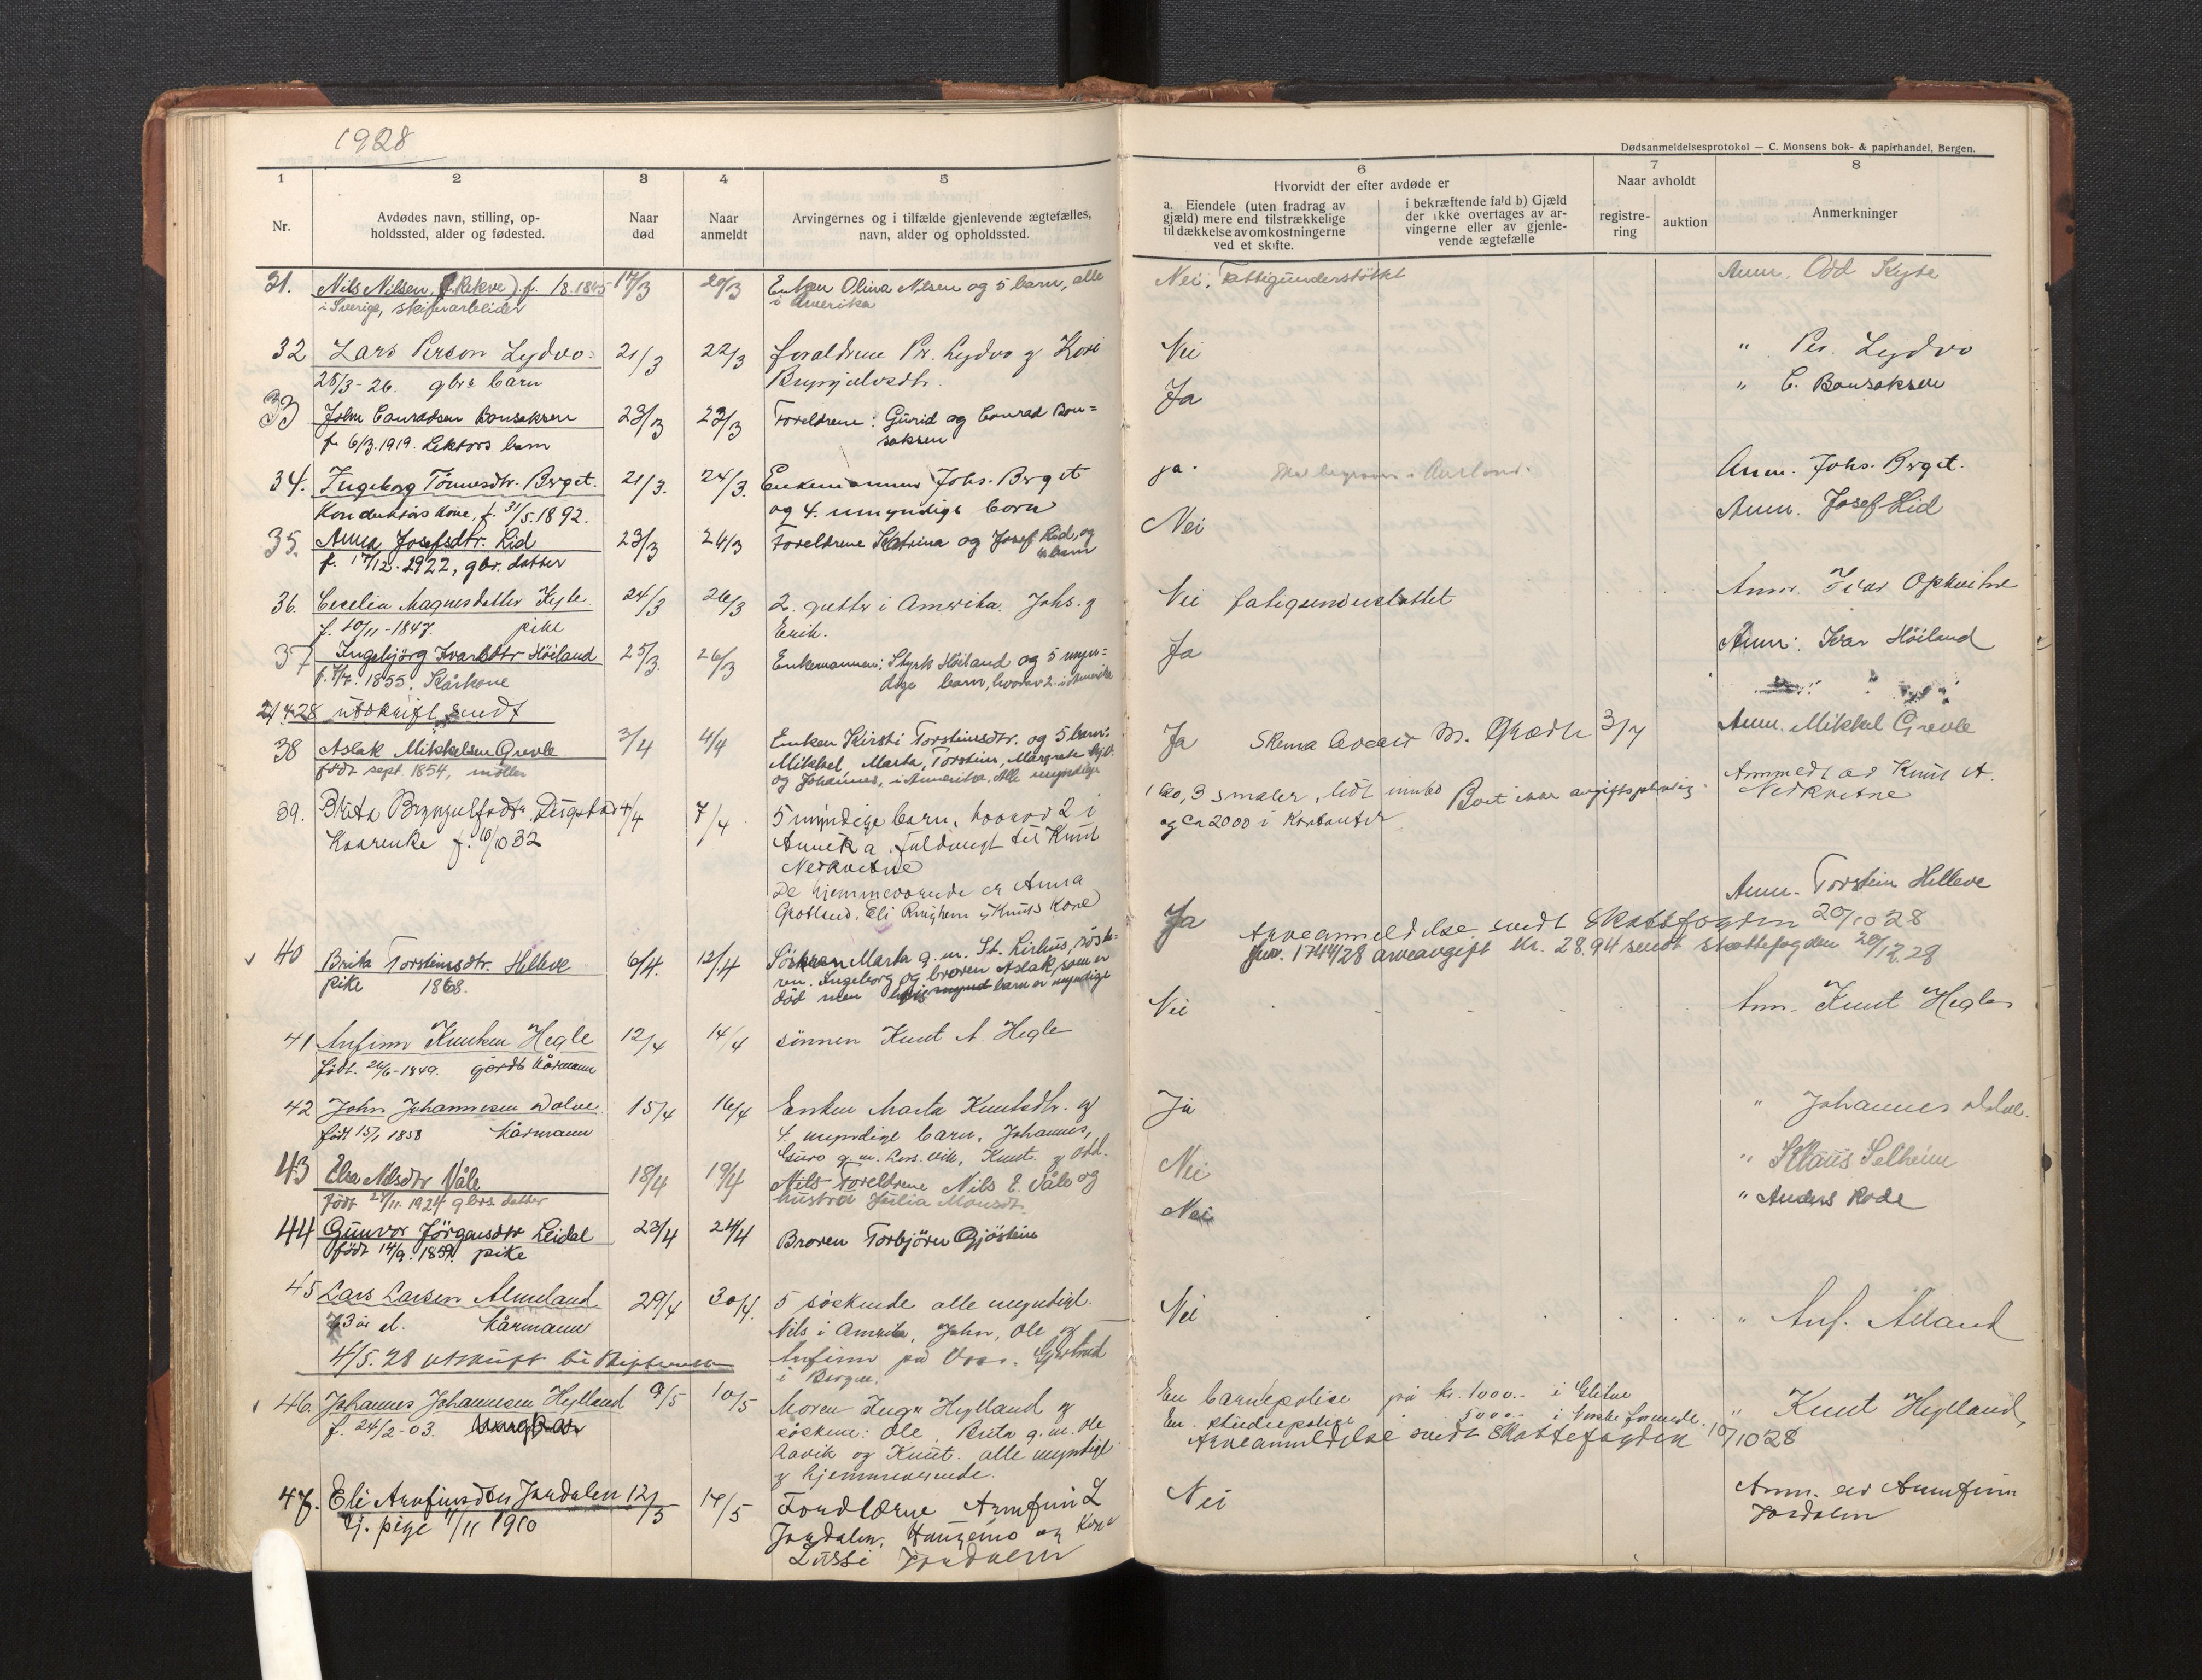 1928
Dødsanmeldelsesprotokol — C. Monsens bok- & papirhandel, Bergen.
1 2 3 4 5 6 7 8
Nr.
Avdødes navn, stilling, op-
holdssted, alder og fødested.
Naar
død
Naar
anmeldt
Arvingernes og i tilfælde gjenlevende ægtefælles,
navn, alder og opholdssted.
Hvorvidt der efter avdøde er
a. Eiendele (uten fradrag av
gjæld) mere end tilstrækkelige
til dækkelse av omkostningerne
ved et skifte.
i bekræftende fald b) Gjæld
der ikke overtages av ar-
vingerne eller av gjenle-
vende ægtefælle
Naar avholdt
registre-
ring
auktion
Anmerkninger
31. Nils Nilsen (Rekve). f. 1845 17/3 20/3 Enken Olina Nilsen og 5 barn, alle Nei, Fattigunderstöttet Anm. Odd Kyte
i Sverige, skiferarbeider i Amerika
32 Lars Person Lydvo 21/3 22/3 foreldrene Pr. Lydvo og Kari Nei " Per Lydvo
25/3-26. gbrs barn Brynjulvsdtr.
33 John Conradsen Bonsaksen 23/3 23/3 Foreldrene: Gurid og Conrad Bon= Ja " C. Bonsaksen
f. 6/3.1919. Lektors barn saksen
34. Ingeborg Tönnesdtr. Berget. 21/3. 24/3. Enkemannen Johs. Berget ja. Anm. Johs. Berget.
Konduktörs kone, f. 31/5.1892. og 4. umyndige born
35. Anna Josefsdtr. Lid 23/3 24/3 Foreldrene Katrina og Josef Lid, og Nei Anm. Josef Lid
f. 17/12.1922, gbr. datter
36. Cecelia Magnesdatter Kyte 24/3 26/3 2. gutter i Amerika. Johs. og Nei fatigunderstöttet Anm. Ivar Opkvitne
f. 10/11-1847. pike Erik.
37 Ingebjörg Ivarsdtr Höiland 25/3. 26/3 Enkemannen: Styrk Höiland og 5 myn= Ja Anm: Ivar Höiland
1855. Kårkone dige barn, hvorav 2 i Amerika
21/4 28 utskrift sendt
38 Aslak Mikkelsen Grevle 3/4 4/4 Enken Kirsti Torsteinsdtr. og 5 barn: Ja Skema 3/7 Anm. Mikkel Grevle
född sept. 1854, möller Mikkel, Marta, Torstein, Margrete
og Johannes, i Amerika. Alle myndige
39. Brita Brynjulfsdtr. 4/4 7/4 5 myndige barn, hvorav 2 i 1 ko, 3 smaler, lidt innbo Anmeldt av Knut A.
Kaarenke f. 6/10 32 Amerika. Fuldmagt til Knut og ca 2000 i kontanter Nedkvitne
Nedkvitne
De hjemmeværende er Anna
Grotland. Eli Ringheim og Knuts kone
40 Brita Torsteinsdtr. Helleve 6/4. 12/4 Ja Anm. Torstein Helleve
pike 1868. Arveanmeldelse sendt Skattefogden 20/10 28
Söstren Marta g. m. St. Lirhus, söste-
ren Ingeborg og broren Aslak, som er
död men barn er myndige
1744/28 arveavgift kr. 28.94 sendt skattefogden 20/12 28
41 Anfinn Knutsen Hegle 12/4 14/4 sönnen Knut A. Hegle Nei Anm. Knut Hegle
födt. 26/6-1849. kårmann
42 John Johannesen Dolve 15/4 16/4 Enken Marta Knutsdtr. og Ja " Johannes Dolve.
födt 15/1 1858 kårmann 4. myndige barn, Johannes,
Guro g. m. Lars Vik, Knut og Odd.
43 Elsa Nilsdtr Våle 18/4 19/4 Foreldrene Nils E. Våle og Nei " Klaus Selheim
Födt 27/11. 1924 gbrs datter hustru Julia Monsdtr
44 Gunvor Jörgensdtr Leidal 23/4 24/4 Broren Torbjörn Gjöstein Nei " Anders Rode
födt 14/9. pike
45 Lars Larsen Almeland 29/4 30/4. 5 söskende alle myndige. Nei
73 år kårmann Nils i Amerika, John, Ole og
4/5. 28 utskrift Anfinn på Voss. Gjertrud
i Bergen.
46. Johannes Johannesen Hylland 9/5 10/5 Moren Inga Hylland og En barnepolise på kr. 1000.- i " Knut Hylland,
f. 24/2-03. söskene: Ole, Brita g. m. Ole En studiepolise 5000.- i
Ravik og Knut. alle myndige Arveanmeldelse sendt Skattefogden 10/10 28
og hjemmeværende.
47. Eli Arnfinsdtr Jordalen 12/5 14/5 Foreldrene Arnfinn L Nei Anm. av Arnfinn
tj. pige 11/11 1910 Jordalen, og kone Jordalen
Lussi Jordalen